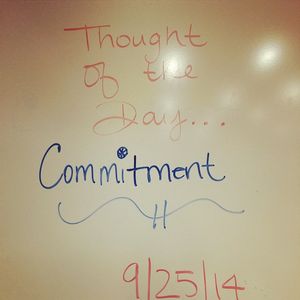 Thought
of the
Day...
Commitment
9/25/14